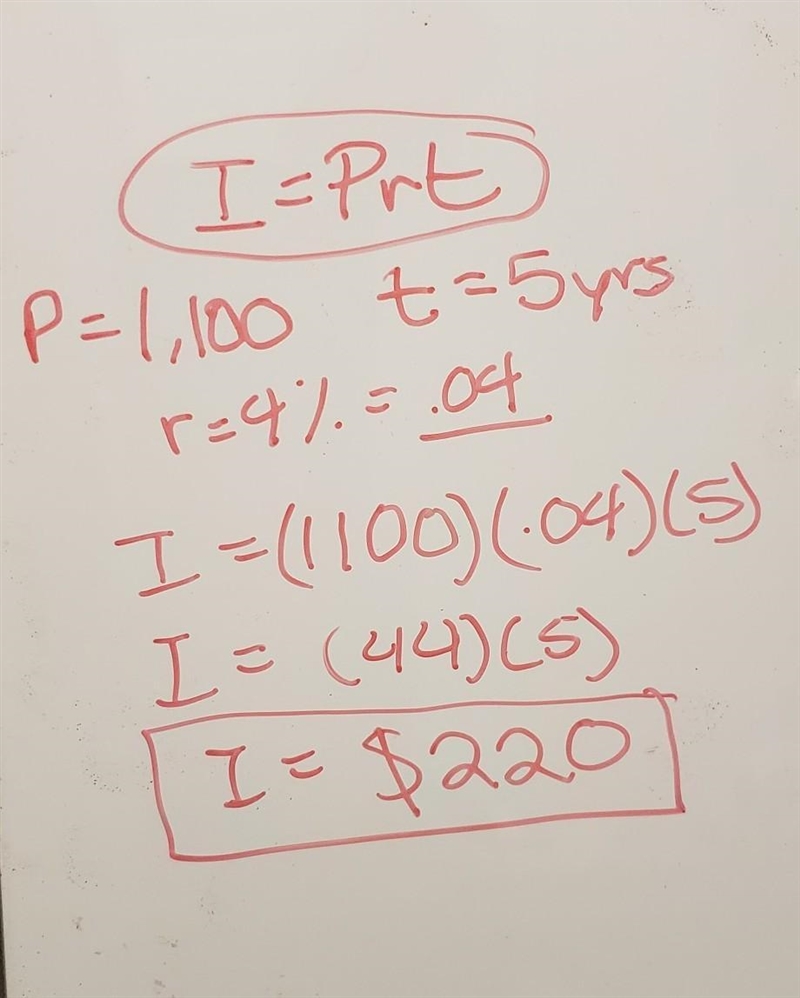 I = Prt
P = 1,100 t = 5yrs
r = 4% = .04
I = (1100)(.04)(5)
I = (44)(5)
I = $220